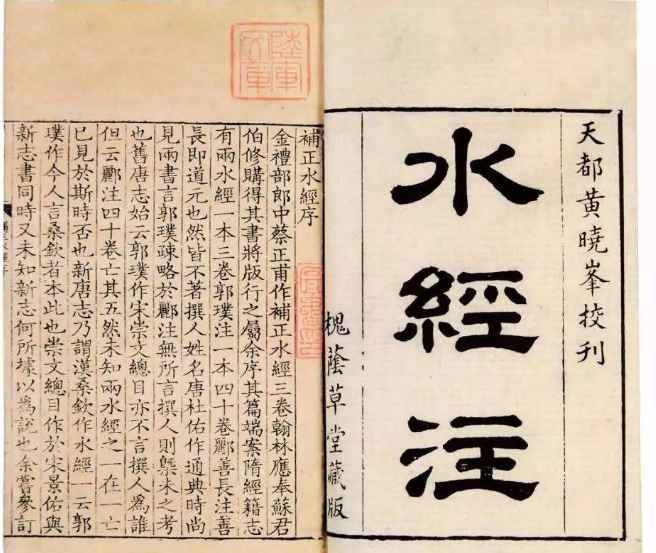 天都黄曉峯挍刊
水經注
槐蔭草堂藏版
陸軍文庫
補正水經序
金禮部郎中蔡正甫作補正水經三卷翰林應奉蘇君
伯修購得其書將版行之屬余序其篇端案隋經籍志
有兩水經一本三卷郭璞注一本四十卷酈善長注善
長即道元也然皆不著撰人姓名唐杜佑作通典時尚
見兩書言郭璞疎略於酈注無所言撰人則槩未之考
也舊唐志始云郭璞作宋崇文總目亦不言撰人爲誰
但云酈注四十卷亡其五然未知兩水經之一在一亡
已見於斯時否也新唐志乃謂漢桑欽作水經一云郭
璞作今人言桑欽者本此也崇文總目作於宋景佑與
新志書同時又未知新志何所據以爲說也余嘗參訂